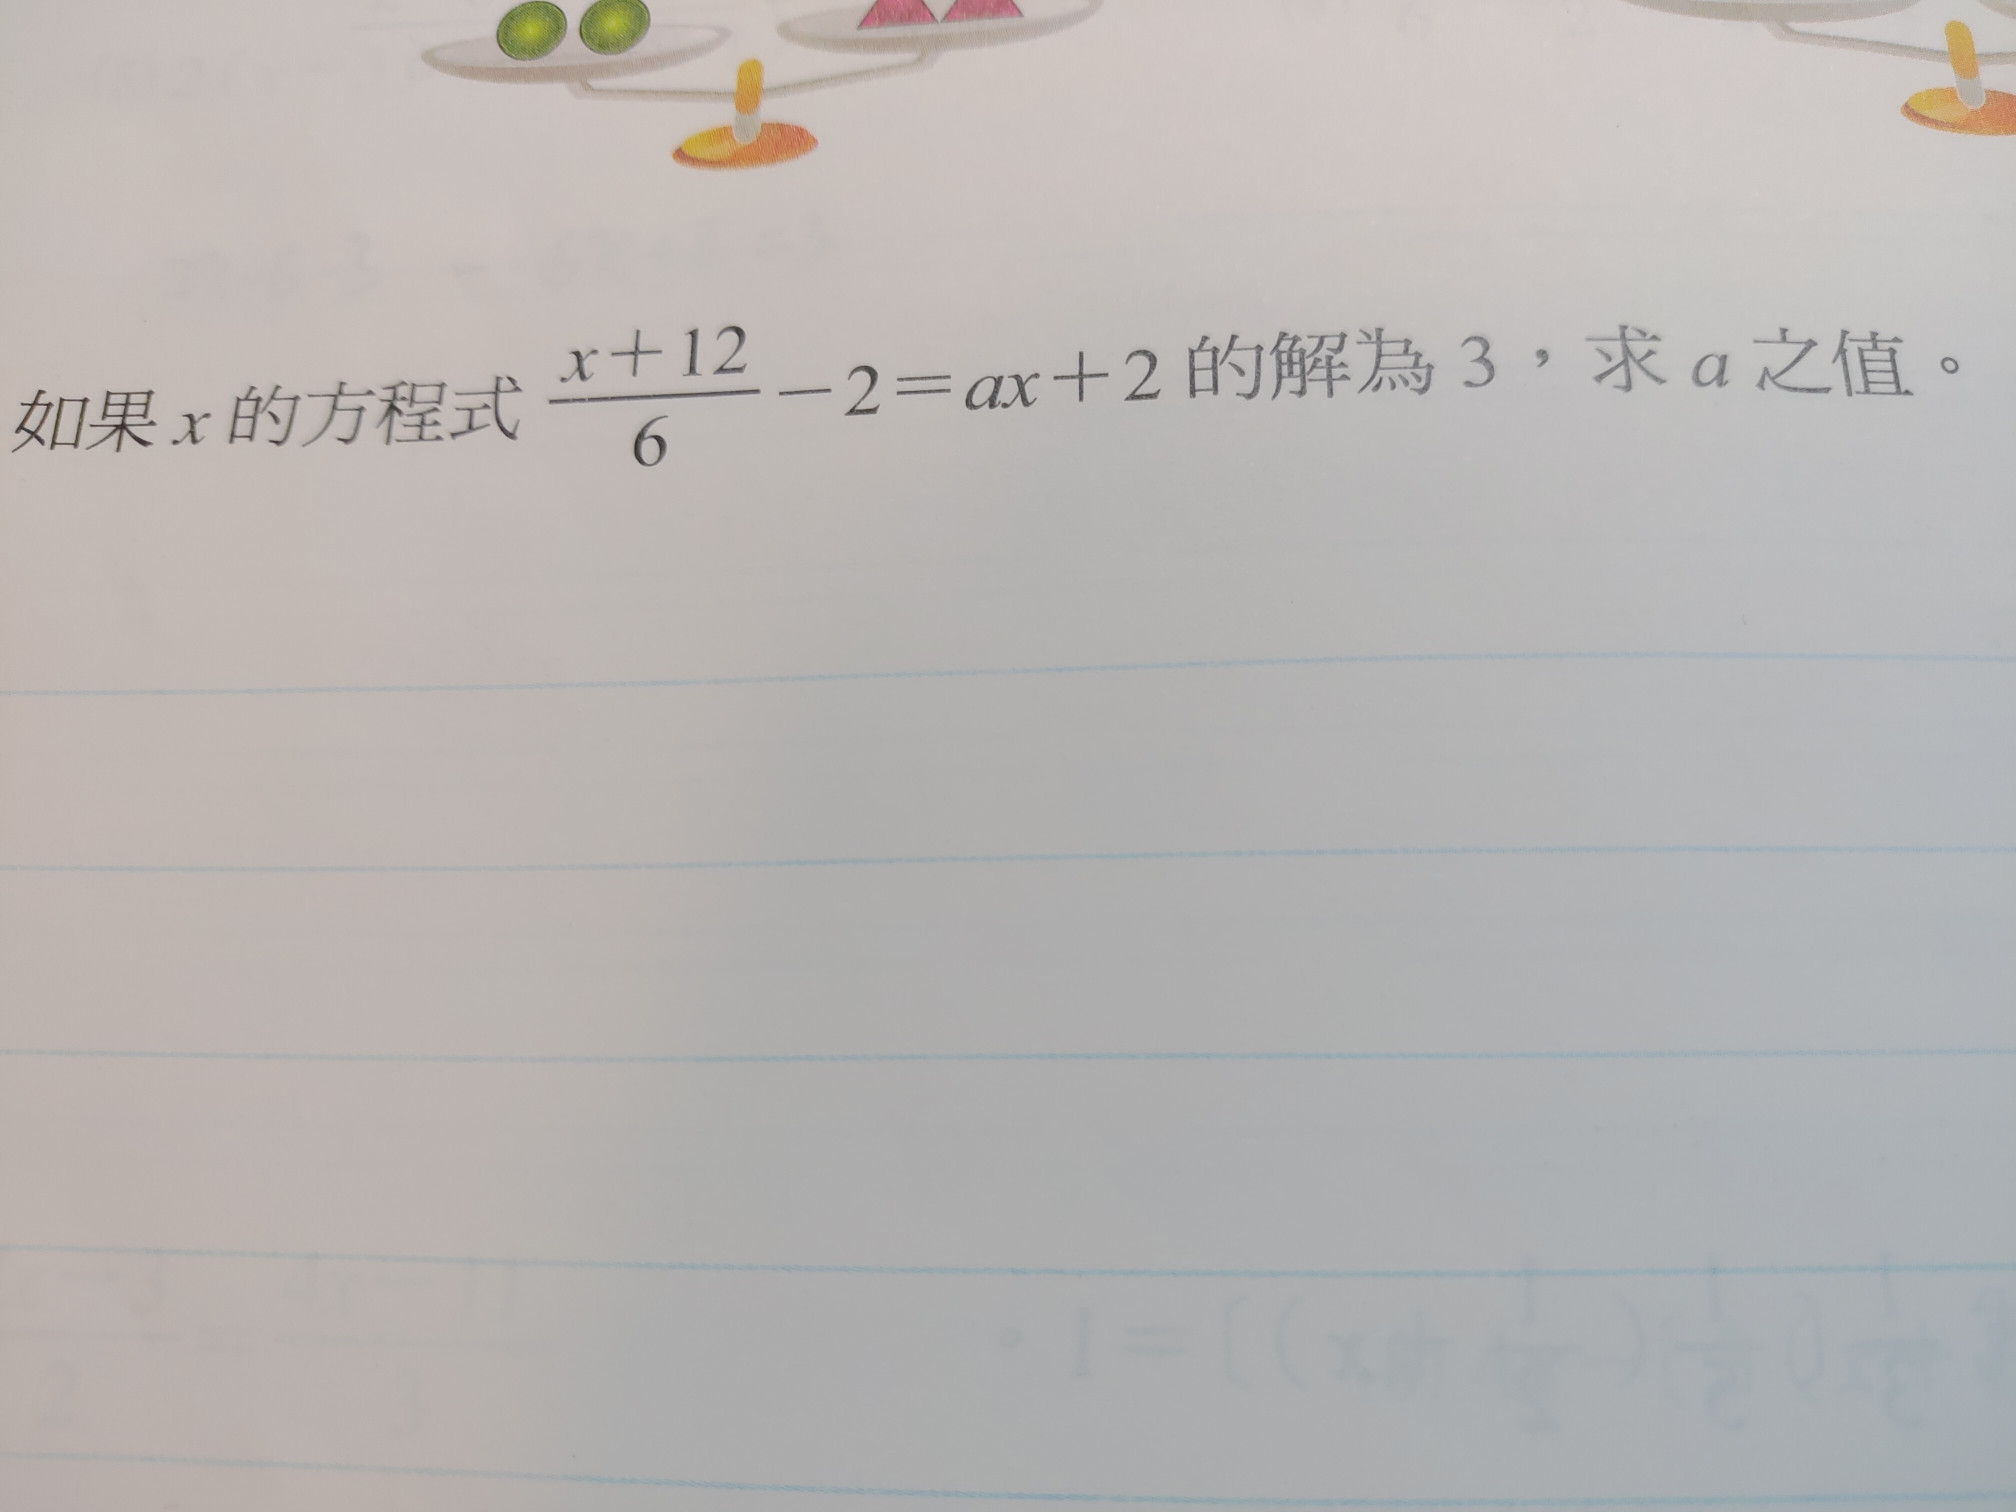 如果 x 的方程式 \frac{x+12}{6}－2＝ax＋2 的解為 3，求 a 之值。